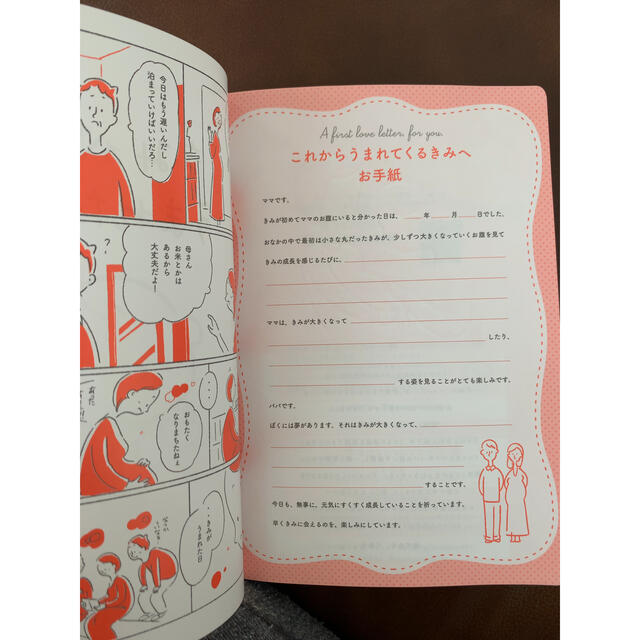 今日はもう遅いんだし
泊まっていけばいいだろ…
母さん
お米とかは
あるから
大丈夫だよー
?
おもたく
なりまちたねぇ
・・きみが
うまれた日
A first love letter, for you.
これからうまれてくるきみへ
お手紙
ママです。
きみが初めてママのお腹にいると分かった日は、 年 月 日でした。
おなかの中で最初は小さな丸だったきみが、少しずつ大きくなっていくお腹を見て
きみの成長を感じるたびに、
ママは、きみが大きくなって
したり、
する姿を見ることがとても楽しみです。
パパです。
ぼくには夢があります。それはきみが大きくなって、
することです。
今日も、無事に、元気にすくすく成長していることを祈っています。
早くきみに会えるのを、楽しみにしています。